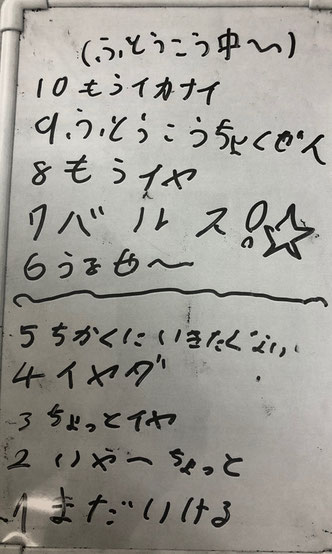 (ふとうこう中〜)
10 もうイカナイ
9 ふとうこうちょくぜん
8 もうイヤ
7 バルス!☆
6 うるせ〜
5 ちかくにいきたくない
4 イヤダ
3 ちょっとイヤ
2 いや〜ちょっと
1 まだいける